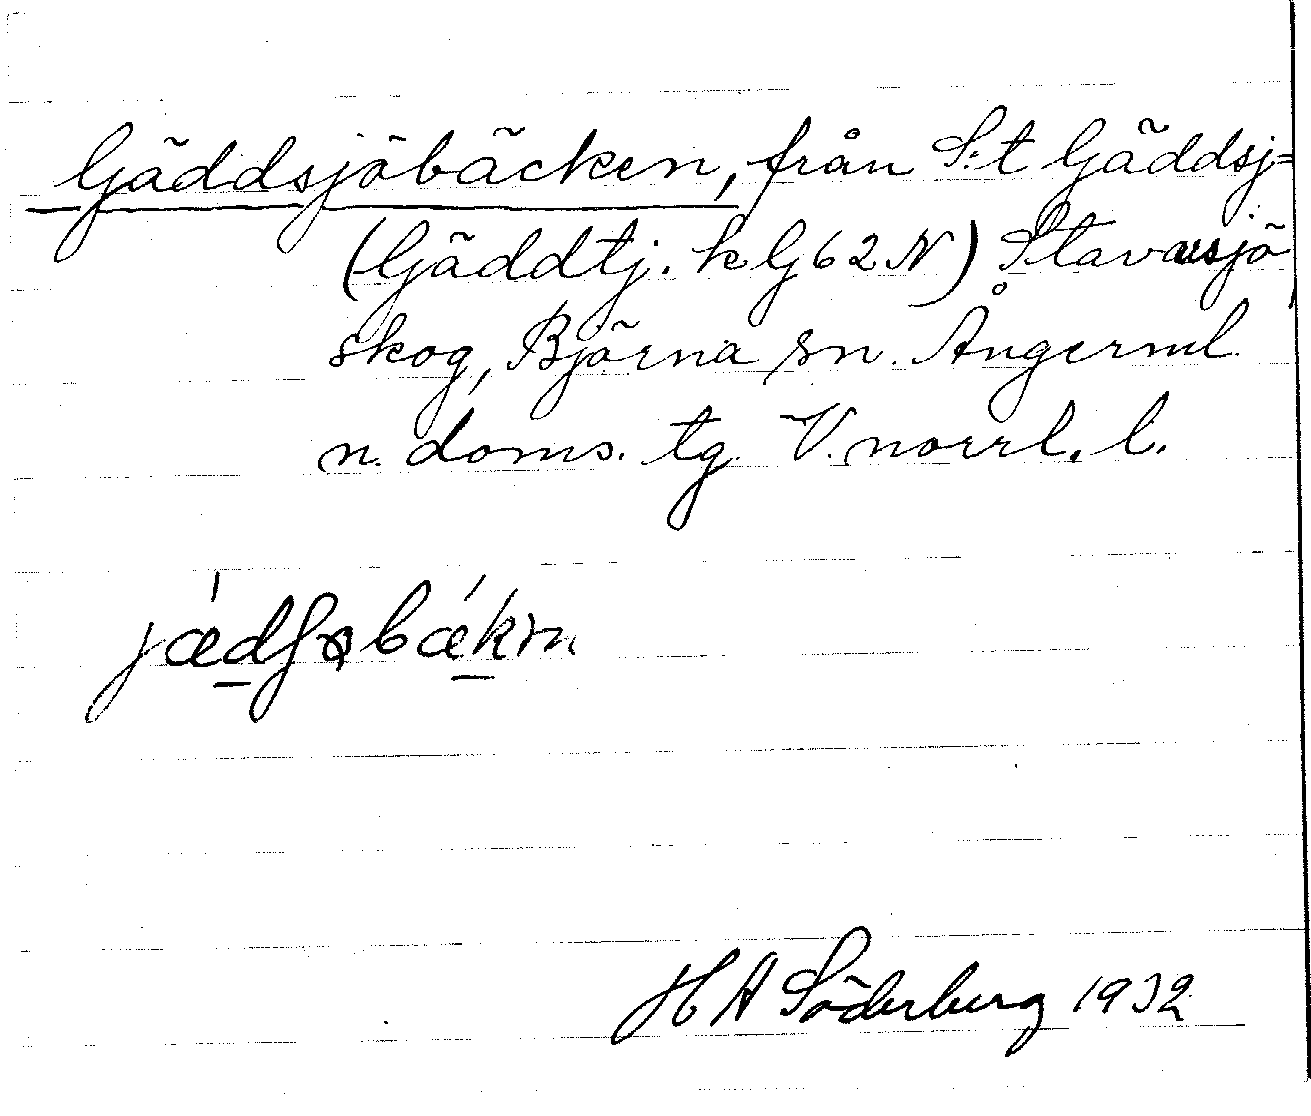 Gäddsjöbäcken, från S:t Gäddsj=
(Gäddtj. k G 62 N) Stavarsjö
skog, Björna sn. Ångerml.
n. doms. tg. V. norrl. l.
H A Söderberg 1932